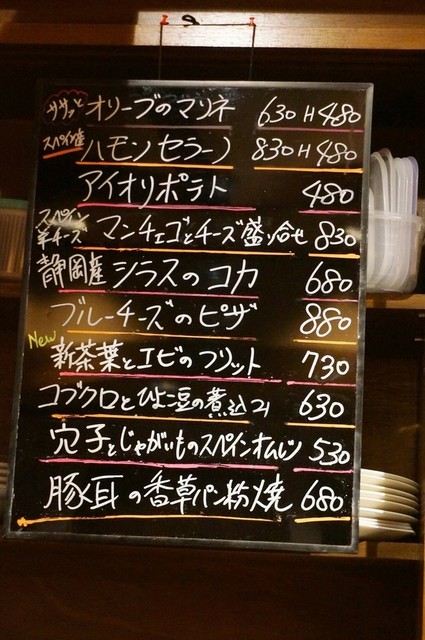 ササっと オリーブのマリネ 630 H480
スペイン産 ハモンセラーノ 830 H480
アイオリポテト 480
スペイン羊チーズ マンチェゴとチーズ盛り合せ 830
静岡産シラスのコカ 680
ブルーチーズのピザ 880
New 新茶葉とエビのフリット 730
コブクロとひよこ豆の煮込み 630
穴子とじゃがいものスペインオムレツ 530
豚耳の香草パン粉焼 680